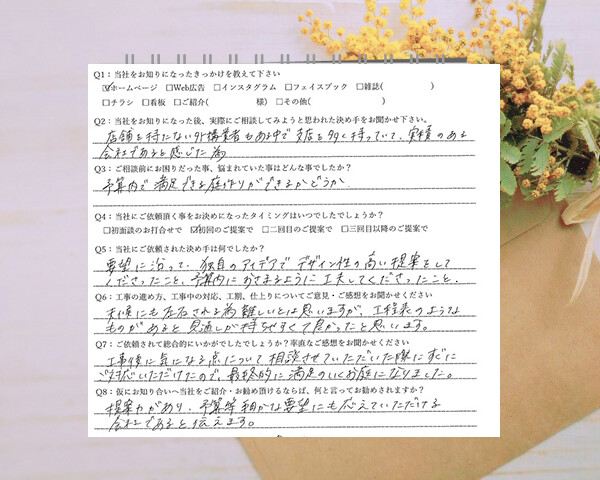 Q1：当社をお知りになったきっかけを教えて下さい
☑ホームページ □Web広告 □インスタグラム □フェイスブック □雑誌( )
□チラシ □看板 □ご紹介( 様) □その他( )
Q2：当社をお知りになった後、実際にご相談してみようと思われた決め手をお聞かせ下さい。
店舗を持たない外構業者もある中で支店を多く持っていて、実績のある
会社であると感じた為
Q3：ご相談前にお困りだった事、悩まれていた事はどんな事でしたか？
予算内で満足できる庭作りができるかどうか
Q4：当社にご依頼頂く事をお決めになったタイミングはいつでしたでしょうか？
□初面談のお打合せで ☑初回のご提案で □二回目のご提案で □三回目以降のご提案で
Q5：当社にご依頼された決め手は何でしたか？
要望に沿って、独自のアイデアでデザイン性の高い提案をして
くださったこと、予算内におさまるように工夫してくださったこと。
Q6：工事の進め方、工事中の対応、工期、仕上りについてご意見・ご感想をお聞かせください
天候にも左右される為難しいとは思いますが、工程表のような
ものがあると見通しが持ちやすくて良かったと思います。
Q7：ご依頼されて総合的にいかがでしたでしょうか？率直なご感想をお聞かせください
工事後に気になる点について相談させていただいた際にすぐに
ご対応いただけたので、最終的に満足のいくお庭になりました。
Q8：仮にお知り合いへ当社をご紹介・お勧め頂けるならば、何と言ってお勧めされますか？
提案力があり、予算等細かな要望にも応えていただける
会社であると伝えます。